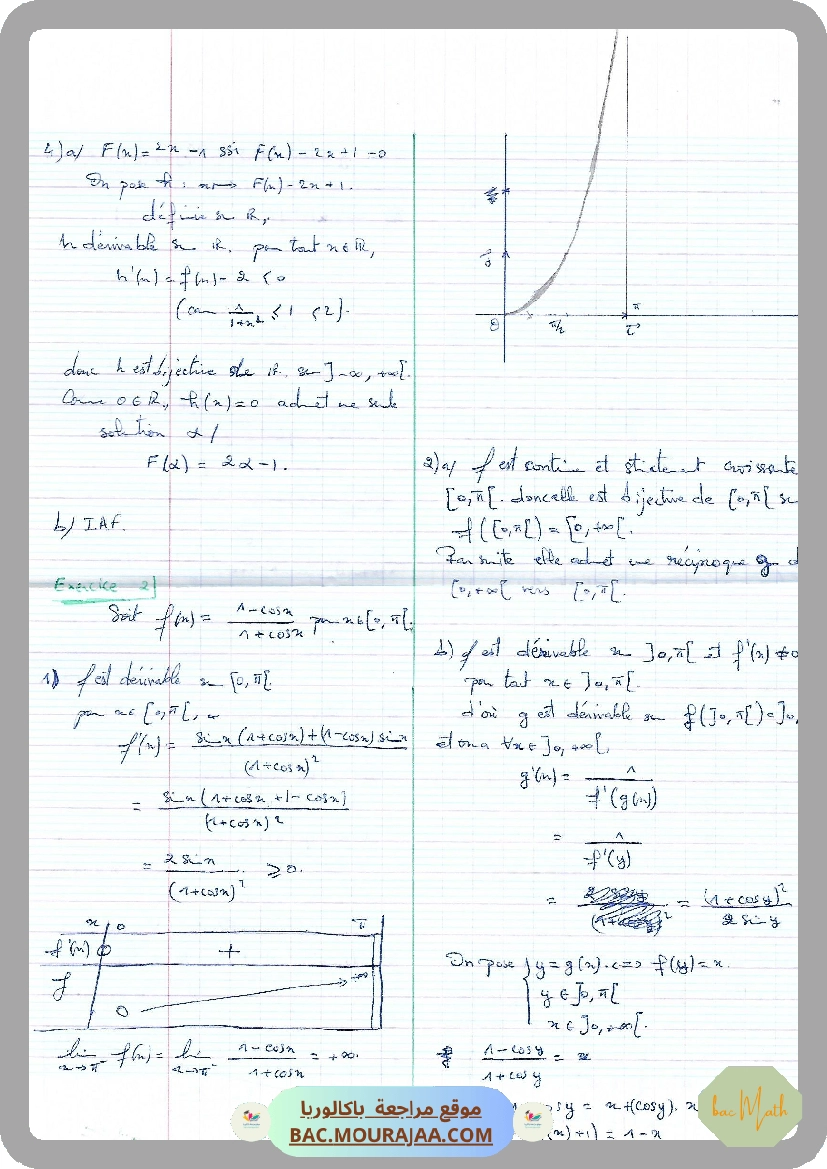 2) a/ F(x) = 2x - 1 ssi F(x) - 2x + 1 = 0
On pose h : x ↦ F(x) - 2x + 1.
définie sur ℝ,
h dérivable sur ℝ. pour tout x ∈ ℝ,
h'(x) = f(x) - 2 < 0
(car 1/(1+x²) ≤ 1 < 2).
donc h est bijective de ℝ sur ]-∞, +∞[.
Comme 0 ∈ ℝ, h(x) = 0 admet une seule
solution α /
F(α) = 2α - 1.
b) I.A.F.
Exercice 2
Soit f(x) = (1 - cos x)/(1 + cos x) pour x ∈ [0, π[.
1) f est dérivable sur [0, π[
pour x ∈ [0, π[,
f'(x) = (sin x (1 + cos x) + (1 - cos x) sin x)/(1 + cos x)²
= (sin x (1 + cos x + 1 - cos x))/(1 + cos x)²
= 2 sin x/(1 + cos x)² ≥ 0.
x 0 π
f'(x) 0 +
f 0 +∞
lim x→π⁻ f(x) = lim x→π⁻ (1 - cos x)/(1 + cos x) = +∞.
j
0 π/2 π
i
2) a/ f est continue et strictement croissante
[0, π[. donc elle est bijective de [0, π[ su
f([0, π[) = [0, +∞[.
Par suite elle admet une réciproque g d
[0, +∞[ vers [0, π[.
b) f est dérivable sur ]0, π[ et f'(x) ≠ 0
pour tout x ∈ ]0, π[.
d'où g est dérivable sur f(]0, π[) = ]0,
et on a ∀x ∈ ]0, +∞[,
g'(x) = 1/f'(g(x))
= 1/f'(y)
= = (1 + cos y)²/(2 sin y)
On pose { y = g(x). ⟺ f(y) = x.
y ∈ ]0, π[
x ∈ ]0, +∞[.
(1 - cos y)/(1 + cos y) = x
os y = x + (cos y). x
(x) + 1) = 1 - x
موقع مراجعة باكالوريا
BAC.MOURAJAA.COM
bac Math